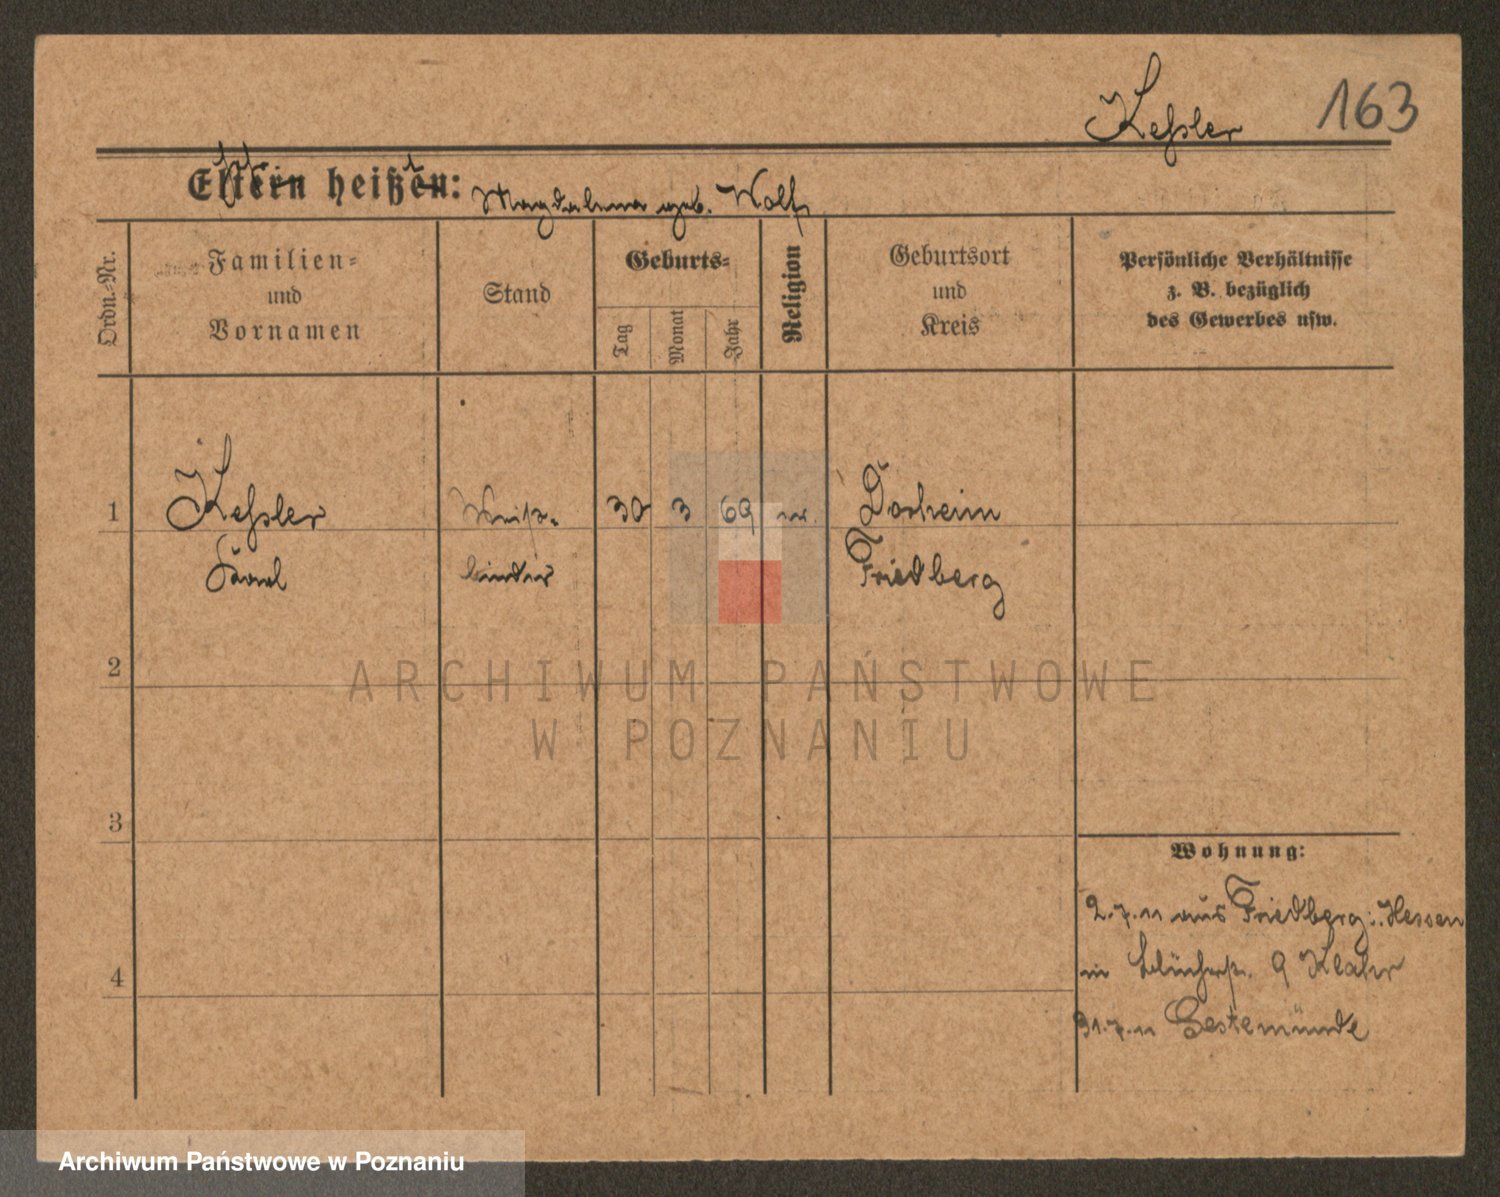 Keßler 163
Eltern heißen: Magdalena geb. Wolf
Ordn.-Nr.
Familien-
und
Vornamen
Stand
Geburts-
Tag
Monat
Jahr
Religion
Geburtsort
und
Kreis
Persönliche Verhältnisse
z. B. bezüglich
des Gewerbes usw.
1 Keßler Weiß- 30 3 69 Dorheim
Karl binder Friedberg
2
3
4
Wohnung:
2.7.11 aus Friedberg i. Hessen
in Blücherstr. 9
31.7.11 Geestemünde
ARCHIWUM PAŃSTWOWE
W POZNANIU
Archiwum Państwowe w Poznaniu